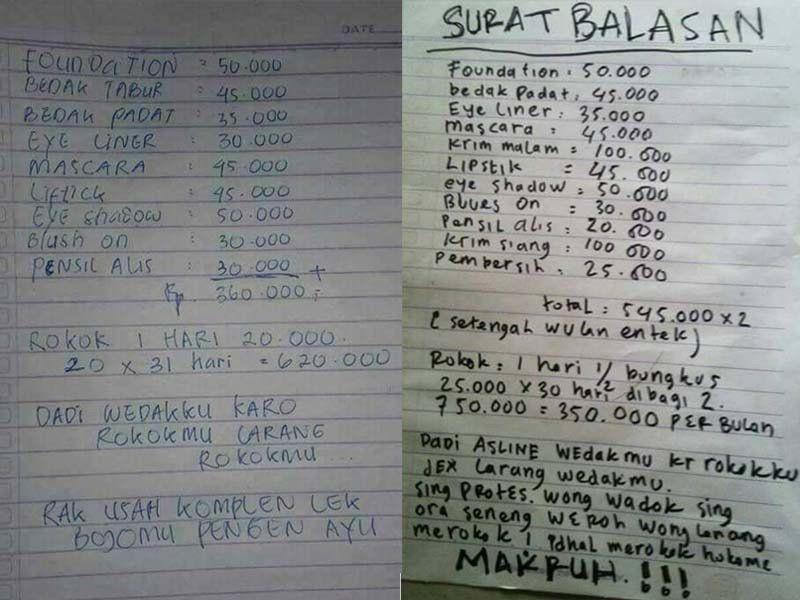 DATE
FOUNDATION = 50.000
BEDAK TABUR : 45.000
BEDAK PADAT : 35.000
EYE LINER : 30.000
MASCARA : 45.000
Liftick : 45.000
Eye shadow : 50.000
Blush on : 30.000
PENSIL ALIS : 30.000 +
Rp. 360.000:-
ROKOK 1 HARI 20.000.
20 x 31 hari = 620.000
DADI WEDAKKU KARO
ROKOKMU LARANG
ROKOKMU...
RAK USAH KOMPLEN LEK
BOJOMU PENGEN AYU
SURAT BALASAN
Foundation : 50.000
bedak padat : 45.000
Eye liner : 35.000
mascara : 45.000
Krim malam = 100.000
LIPStik = 45.000
eye shadow = 50.000
Blues on = 30.000
Pensil alis : 20.000
Krim siang : 100 000
Pembersih : 25.000
total : 545.000 x 2
( setengah wulan entek )
Rokok : 1 hari 1/2 bungkus
25.000 x 30 hari dibagi 2.
750.000 = 350.000 PER BULAN
Dadi ASLINE WEdakmu kr rokokku
JEX Larang wedakmu.
sing PROTES. wong wadok sing
ora seneng WEROH wong Lanang
merokok ! Pdhal merokok hukome
MAKRUH.!!!